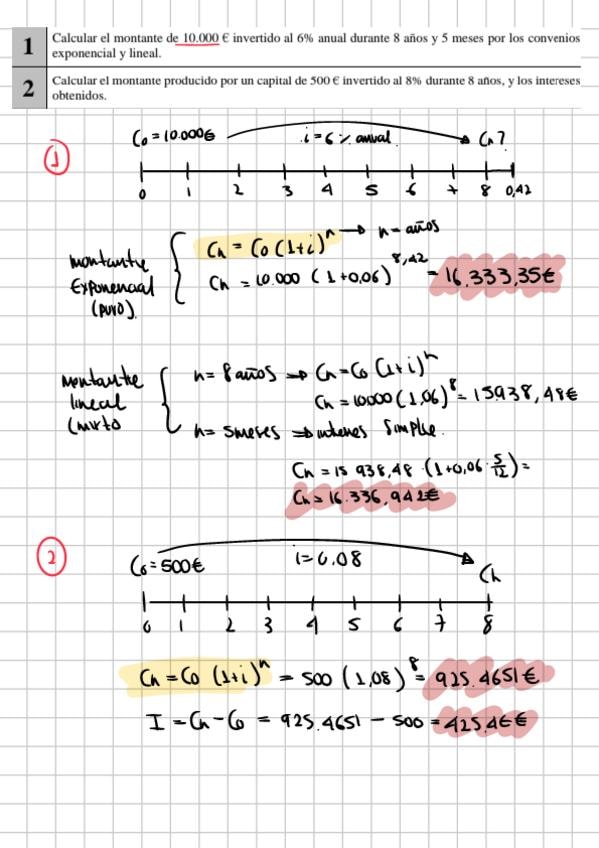 1 Calcular el montante de 10.000 € invertido al 6% anual durante 8 años y 5 meses por los convenios
exponencial y lineal.
2 Calcular el montante producido por un capital de 500 € invertido al 8% durante 8 años, y los intereses
obtenidos.
1
C₀ = 10.000€ i = 6 % anual Cn?
0 1 2 3 4 5 6 7 8 0,42
montante
exponencial
(puro).
Cn = C₀ (1+i)ⁿ → n = años
Cn = 10.000 (1+0,06)^8,42 = 16.333,35€
montante
lineal
(mixto
n = 8 años → Cn = C₀ (1+i)ⁿ
Cn = 10000 (1,06)⁸ = 15938,48€
n = 5 meses ⇒ interes simple.
Cn = 15 938,48 · (1+0,06 · 5/12) =
Cn = 16.336,942€
2
C₀ = 500€ i = 0.08 Cn
0 1 2 3 4 5 6 7 8
Cn = C₀ (1+i)ⁿ = 500 (1,08)⁸ = 925.4651€
I = Cn - C₀ = 925.4651 - 500 = 425.46€